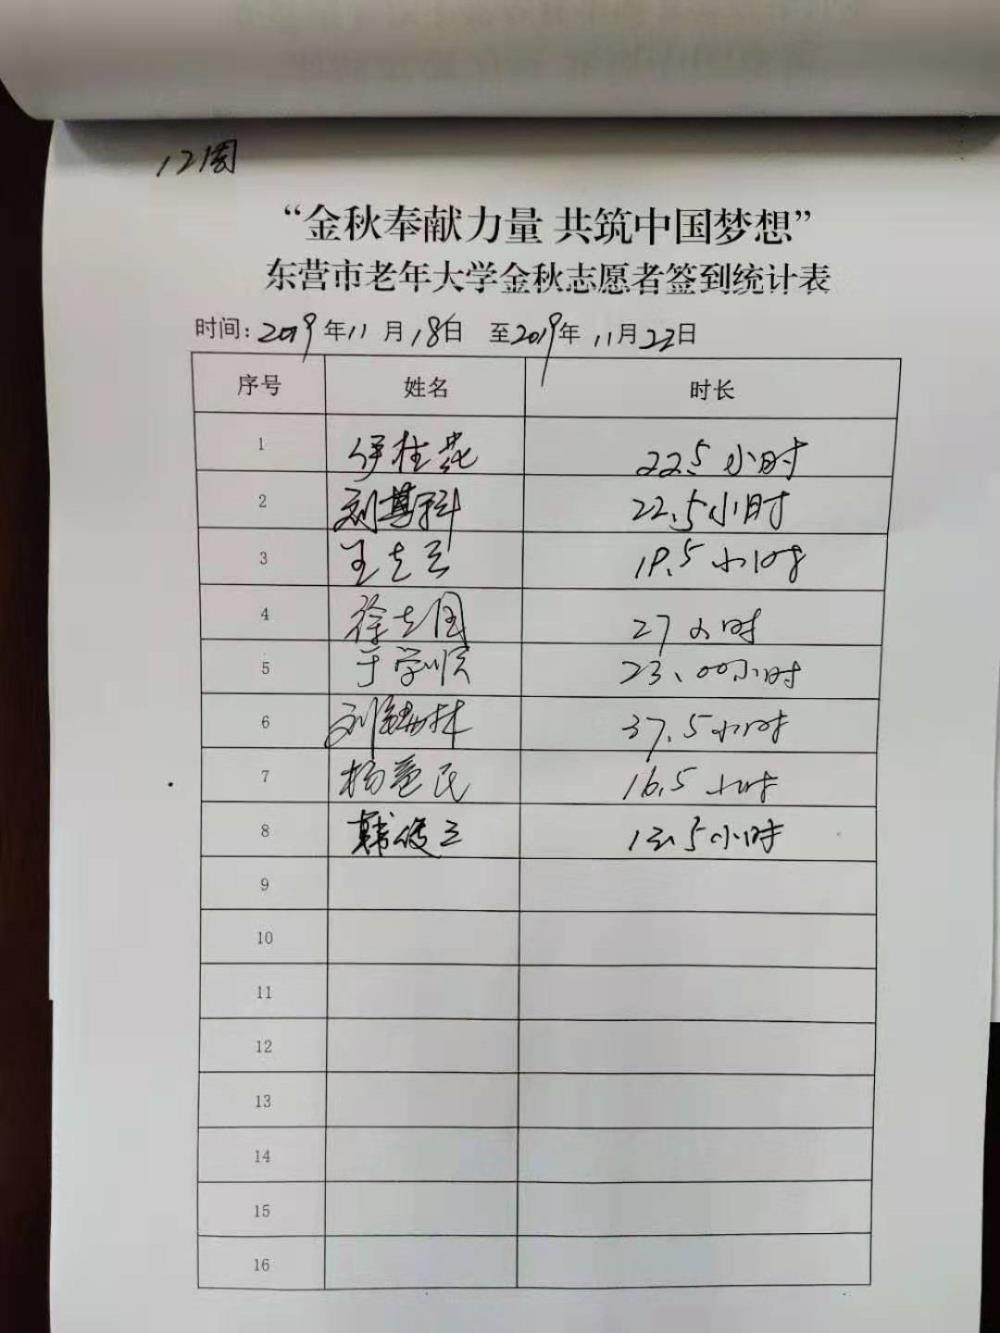 12周
“金秋奉献力量 共筑中国梦想”
东营市老年大学金秋志愿者签到统计表
时间:2019年11月18日 至2019年11月22日
序号 姓名 时长
1 伊桂花 22.5小时
2 刘基科 22.5小时
3 王志云 19.5小时
4 徐志国 27小时
5 于学顺 23.00小时
6 刘林 37.5小时
7 杨民 16.5小时
8 韩俊三 .5小时
9
10
11
12
13
14
15
16